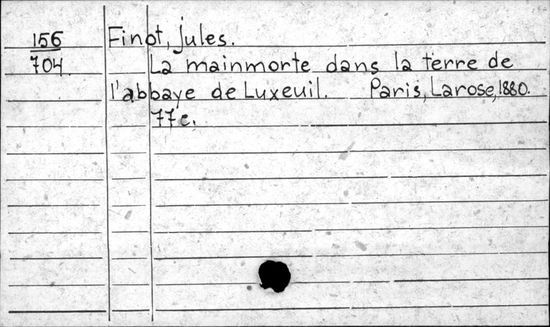 156
704.
Finot, Jules.
La mainmorte dans la terre de
l'abbaye de Luxeuil. Paris, Larose, 1880.
77c.